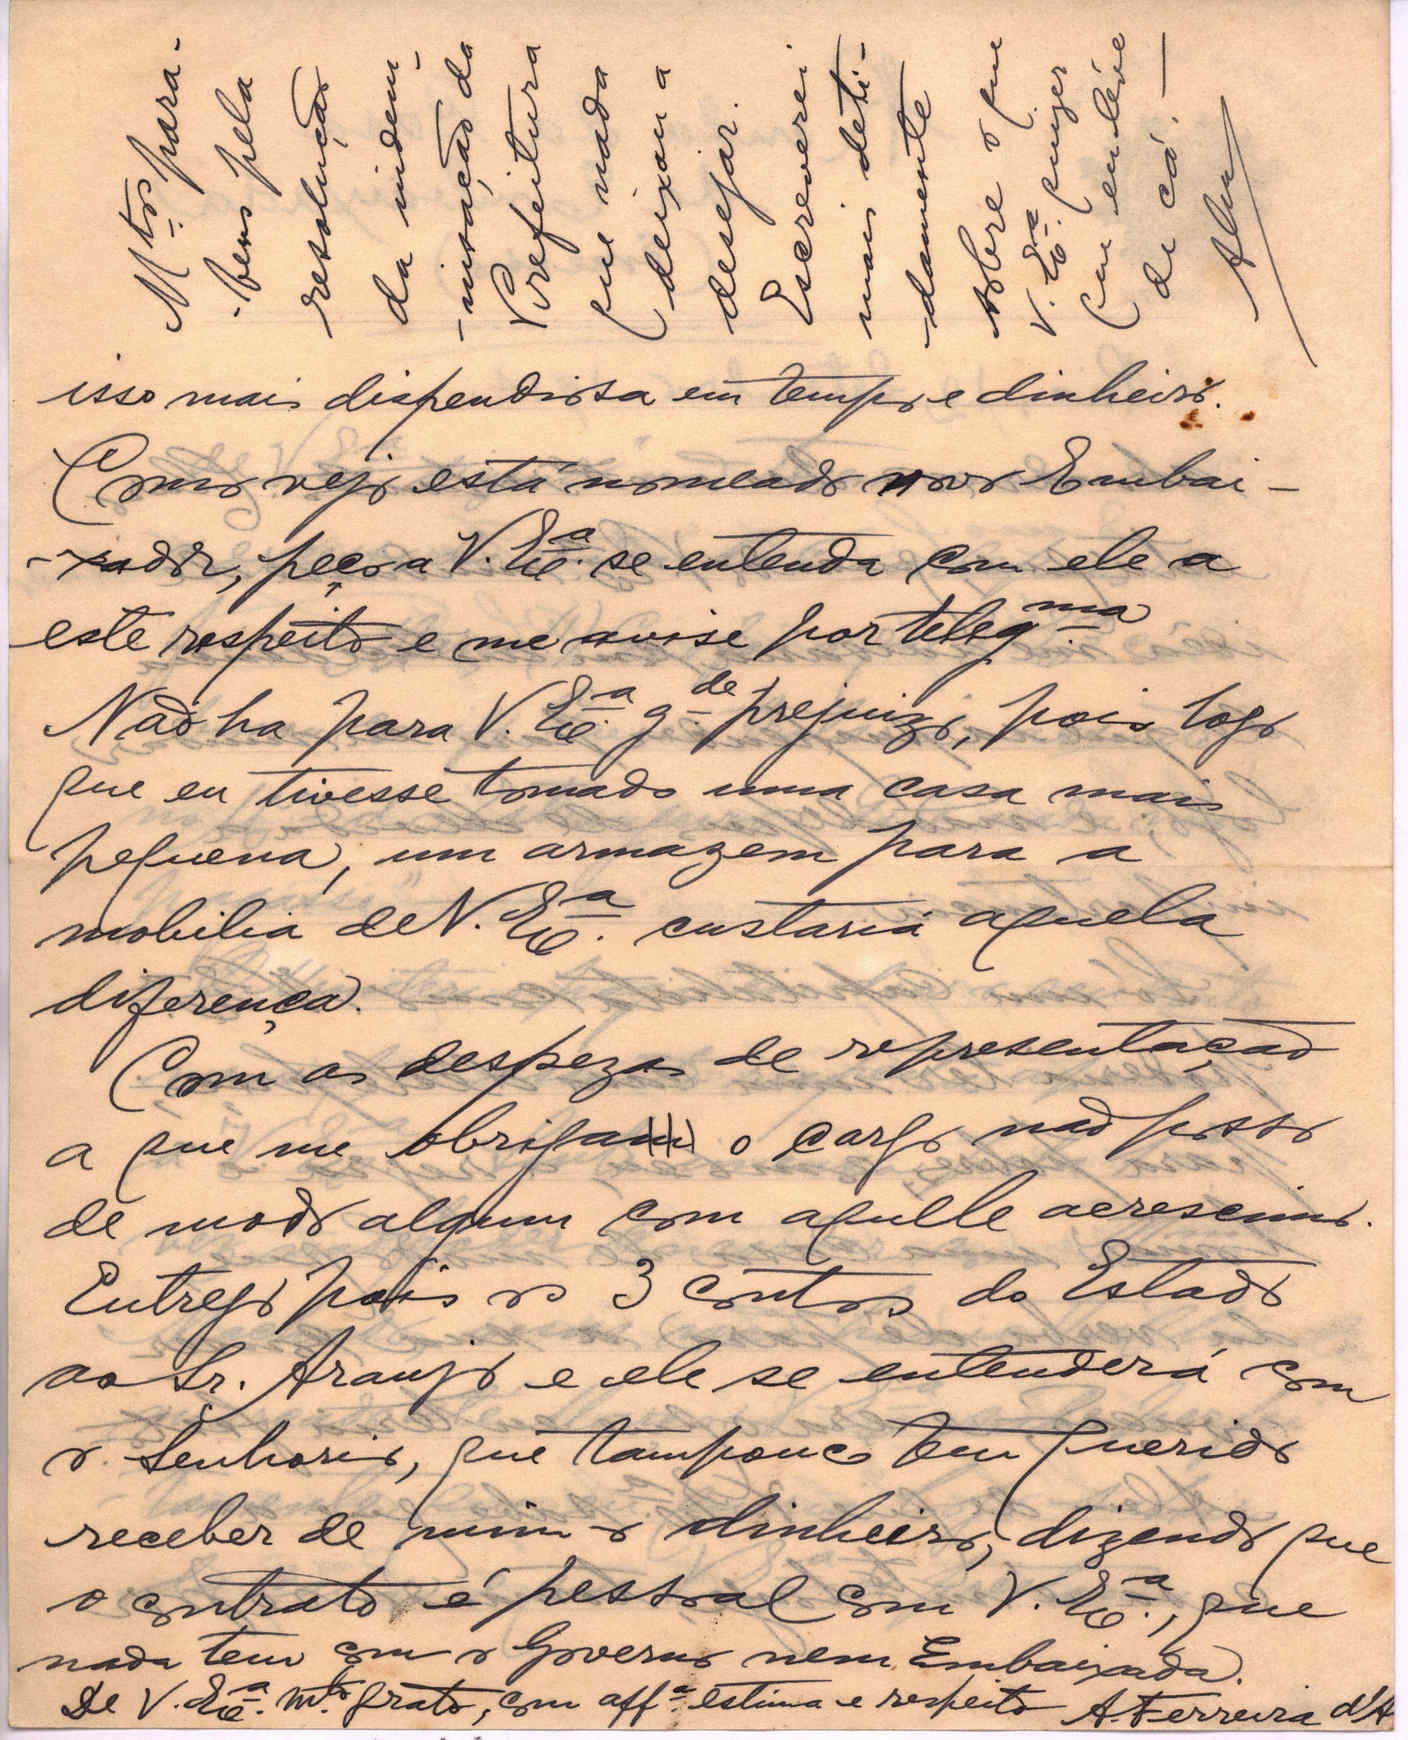 isso mais dispendiosa em tempo e dinheiro.
Como vejo está nomeado novo Embai-
-xador, peço a V. Exª. se entenda com ele a
este respeito e me avise por telegma
Não ha para V. Exª. gde prejuizo, pois logo
que eu tivesse tomado uma casa mais
pequena, um armazem para a
mobilia de V. Exª. custaria aquela
diferença.
Com as despezas de representação
a que me obriga o cargo não posso
de modo algum com aquelle acrescimo.
Entrego pois os 3 contos do Estado
ao Sr. Araujo e ele se entenderá com
o Senhorio, que tampouco tem querido
receber de mim o dinheiro, dizendo que
o contrato é pessoal com V. Exª., que
nada tem com o Governo nem Embaixada.
De V. Exª. mto. grato, com affª. estima e respeito A. Ferreira d'A
Mtos. para-
-bens pela
resolução
da indem-
-nisação da
Prefeitura
que nada
deixou a
desejar.
Escreverei
mais deti-
-damente
sobre o que
V. Exª. quizer
que eu lève
de cá. —